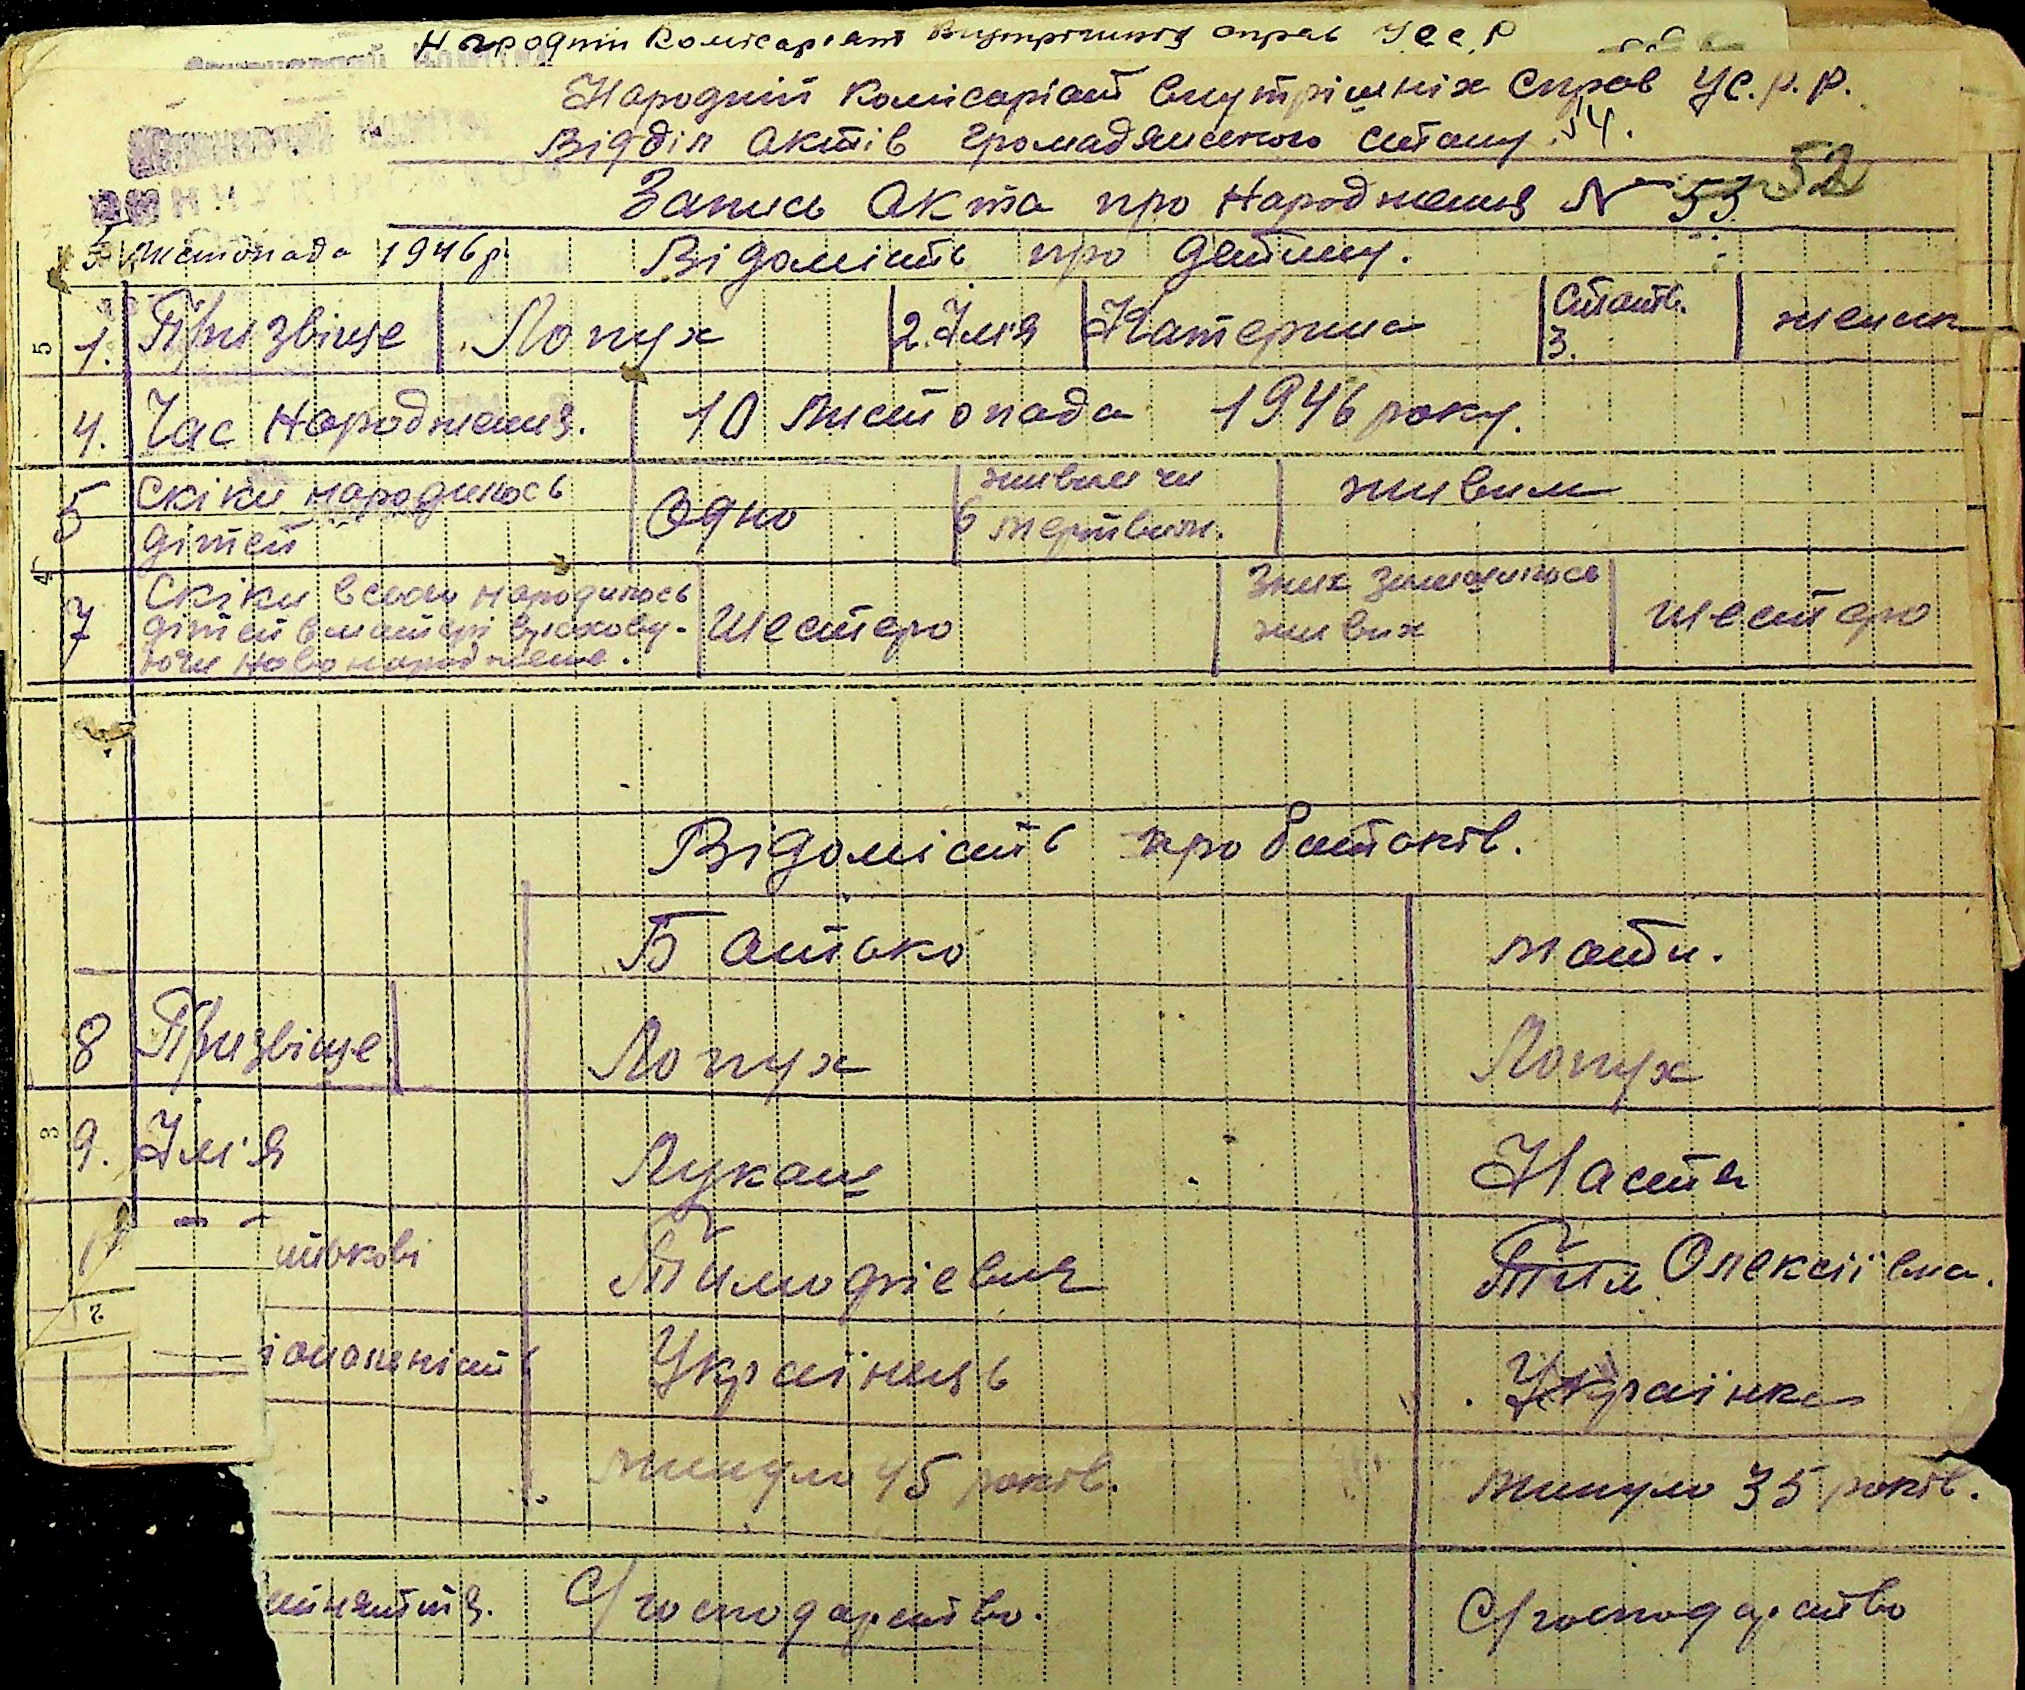 Народній Комісаріят Внутрішніх справ УССР
Народній Комісаріат Внутрішніх Справ УС.Р.Р.
Відділ Актів Громадянського Стану. 54.
Запись Акта про Народження № 53 52
Листопада 1946 р. Відомість про детину.
1. Призвіще Лопух 2. Імя Катерина Статть. 3. женск
4. Час Народження. 10 Листопада 1946 року.
5 Скіки народилось дітей Одно 6 живим чи мертвим. живим
7 Скіки всього народилось дітей в матері враховуючи новонароджене. Шестеро З них залишилось живих шестеро
Відомість про батьків.
Батько Мати.
8 Призвіще Лопух Лопух
9. Ім'я Лукаш Настя
тькові Тимофієвич Олексіївна.
іональність Українець Українка
минуло 45 років. минуло 35 років.
С/господарство. С/господарство